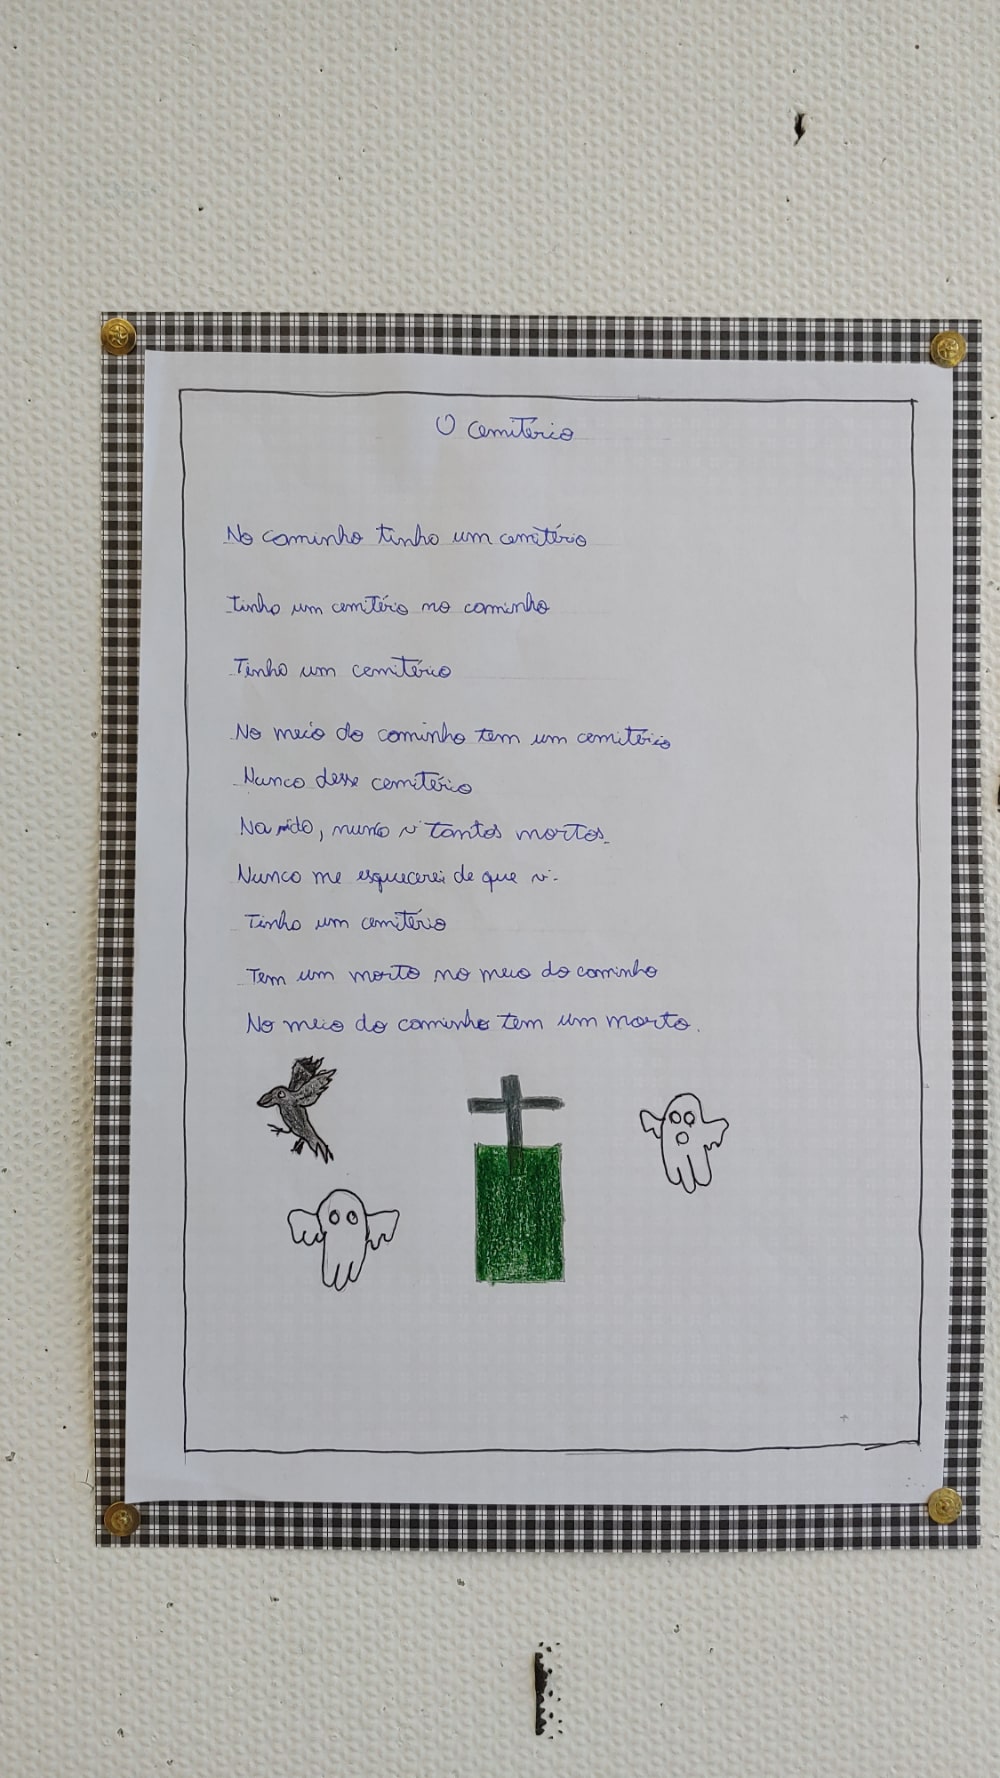 O cemitério
No caminho tinha um cemitério
tinha um cemitério no caminho
Tinha um cemitério
No meio do caminho tem um cemitério
Nunca desse cemitério
Na vida, nunca vi tantos mortos.
Nunca me esquecerei de que vi.
Tinha um cemitério
Tem um morto no meio do caminho
No meio do caminho tem um morto.